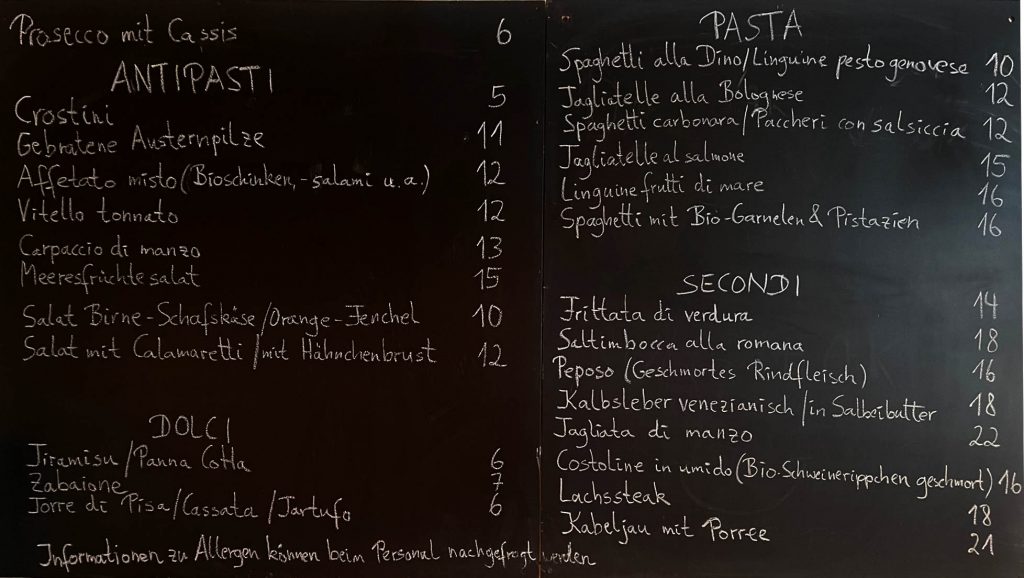 Prosecco mit Cassis 6
ANTIPASTI
Crostini 5
Gebratene Austernpilze 11
Affetato misto (Bioschinken,-salami u.a.) 12
Vitello tonnato 12
Carpaccio di manzo 13
Meeresfrüchtesalat 15
Salat Birne-Schafskäse/Orange-Fenchel 10
Salat mit Calamaretti/mit Hähnchenbrust 12
DOLCI
Tiramisu/Panna Cotta 6
Zabaione 7
Torre di Pisa/Cassata/Tartufo 6
Informationen zu Allergen können beim Personal nachgefragt werden
PASTA
Spaghetti alla Dino/Linguine pesto genovese 10
Tagliatelle alla Bolognese 12
Spaghetti carbonara/Paccheri con salsiccia 12
Tagliatelle al salmone 15
Linguine frutti di mare 16
Spaghetti mit Bio-Garnelen & Pistazien 16
SECONDI
Frittata di verdura 14
Saltimbocca alla romana 18
Peposo (Geschmortes Rindfleisch) 16
Kalbsleber venezianisch/in Salbeibutter 18
Tagliata di manzo 22
Costoline in umido (Bio-Schweinerippchen geschmort) 16
Lachssteak 18
Kabeljau mit Porree 21